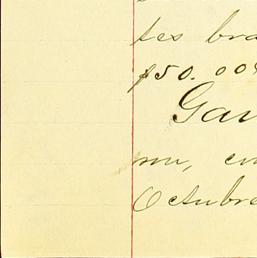 tes bra
$50.00
Gau
mu, en
Octubre